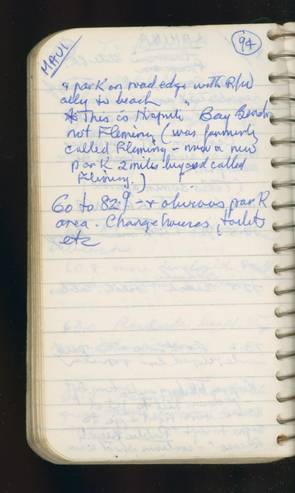 MAUI
94
a park on road edge with R/W
ally to beach
* This is Napili Bay Beach
not Fleming (was formerly
called Fleming - now a new
park 2 miles beyond called
Fleming.)
Go to 82.9 - x obvious park
area. Change houses, toilets
etc